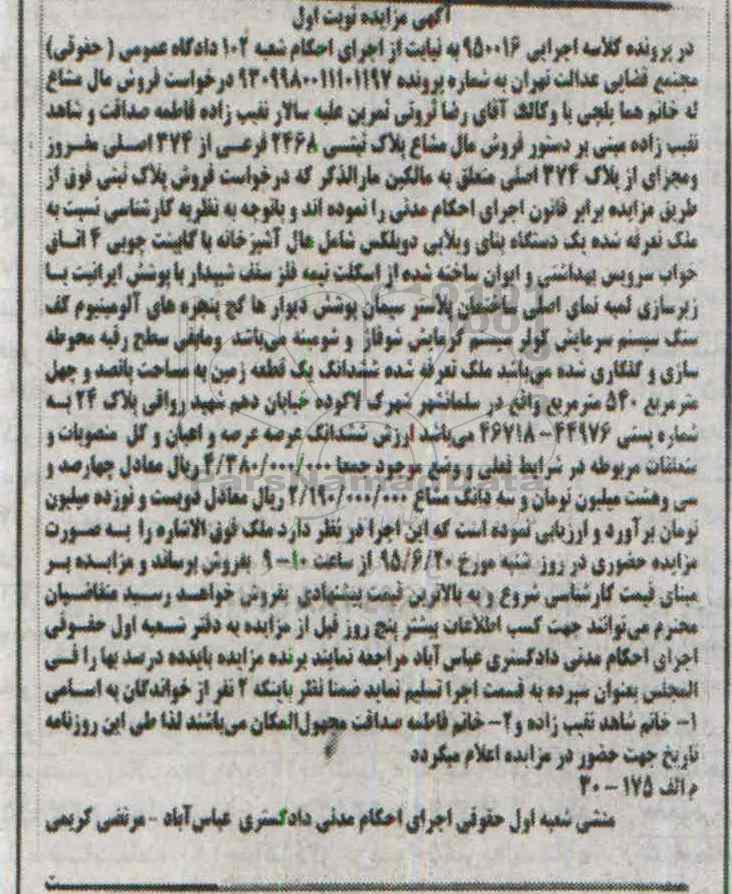 آگهی مزایده نوبت اول
در پرونده کلاسه اجرایی ۹۵۰۰۱۶ به نیابت از اجرای احکام شعبه ۱۰۲ دادگاه عمومی (حقوقی)
مجتمع قضایی عدالت تهران به شماره پرونده ۹۳۰۹۹۸۰۰۱۱۱۰۱۱۹۷ درخواست فروش مال مشاع
له خانم هما یلچی با وکالت آقای رضا ثروتی ثمرین علیه سالار نقیب زاده فاطمه صداقت و شاهد
نقیب زاده مبنی بر دستور فروش مال مشاع پلاک ثبتی ۲۴۶۸ فرعی از ۳۷۴ اصلی مفروز
ومجزای از پلاک ۳۷۴ اصلی متعلق به مالکین مارالذکر که درخواست فروش پلاک ثبتی فوق از
طریق مزایده برابر قانون اجرای احکام مدنی را نموده اند و باتوجه به نظریه کارشناسی نسبت به
ملک تعرفه شده یک دستگاه بنای ویلایی دوبلکس شامل هال آشپزخانه با کابینت چوبی ۴ اتاق
خواب سرویس بهداشتی و ایوان ساخته شده از اسکلت نیمه فلز سقف شیبدار با پوشش ایرانیت با
زیرسازی لمبه نمای اصلی ساختمان پلاستر سیمان پوشش دیوار ها گچ پنجره های آلومینیوم کف
سنگ سیستم سرمایش کولر سیستم گرمایش شوفاژ و شومینه می‌باشد ومابقی سطح رقبه محوطه
سازی و گلکاری شده می‌باشد ملک تعرفه شده ششدانگ یک قطعه زمین به مساحت پانصد و چهل
مترمربع ۵۴۰ مترمربع واقع در سلمانشهر شهرک لاکوده خیابان دهم شهید رواقی پلاک ۲۴ به
شماره پستی ۴۴۹۷۶-۴۶۷۱۸ می‌باشد ارزش ششدانگ عرصه عرصه و اعیان و کل منصوبات و
متعلقات مربوطه در شرایط فعلی و وضع موجود جمعا ۴/۳۸۰/۰۰۰/۰۰۰ ریال معادل چهارصد و
سی وهشت میلیون تومان و سه دانگ مشاع ۲/۱۹۰/۰۰۰/۰۰۰ ریال معادل دویست و نوزده میلیون
تومان برآورد و ارزیابی نموده است که این اجرا در نظر دارد ملک فوق الاشاره را به صورت
مزایده حضوری در روز شنبه مورخ ۹۵/۶/۲۰ از ساعت ۱۰-۹ بفروش برساند و مزایده بر
مبنای قیمت کارشناسی شروع و به بالاترین قیمت پیشنهادی بفروش خواهد رسید متقاضیان
محترم می‌توانند جهت کسب اطلاعات بیشتر پنج روز قبل از مزایده به دفتر شعبه اول حقوقی
اجرای احکام مدنی دادگستری عباس آباد مراجعه نمایند برنده مزایده بایدده درصد بها را فی
المجلس بعنوان سپرده به قسمت اجرا تسلیم نماید ضمنا نظر باینکه ۲ نفر از خواندگان به اسامی
۱- خانم شاهد نقیب زاده و۲- خانم فاطمه صداقت مجهول‌المکان می‌باشند لذا طی این روزنامه
تاریخ جهت حضور در مزایده اعلام میگردد
م الف ۱۷۵ - ۲۰
منشی شعبه اول حقوقی اجرای احکام مدنی دادگستری عباس آباد - مرتضی کریمی
ParsNamadData